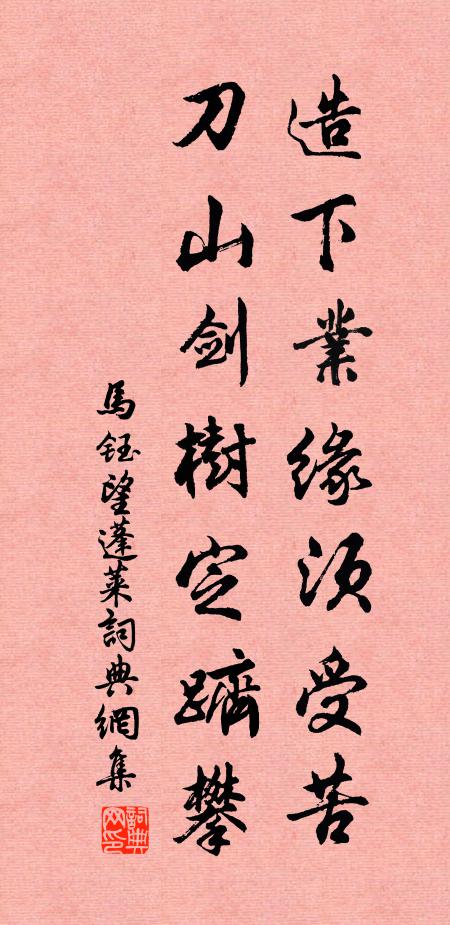 造下業緣須受苦
刀山劍樹定躋攀
馬鈺望蓬萊詞典網集
詞典網印